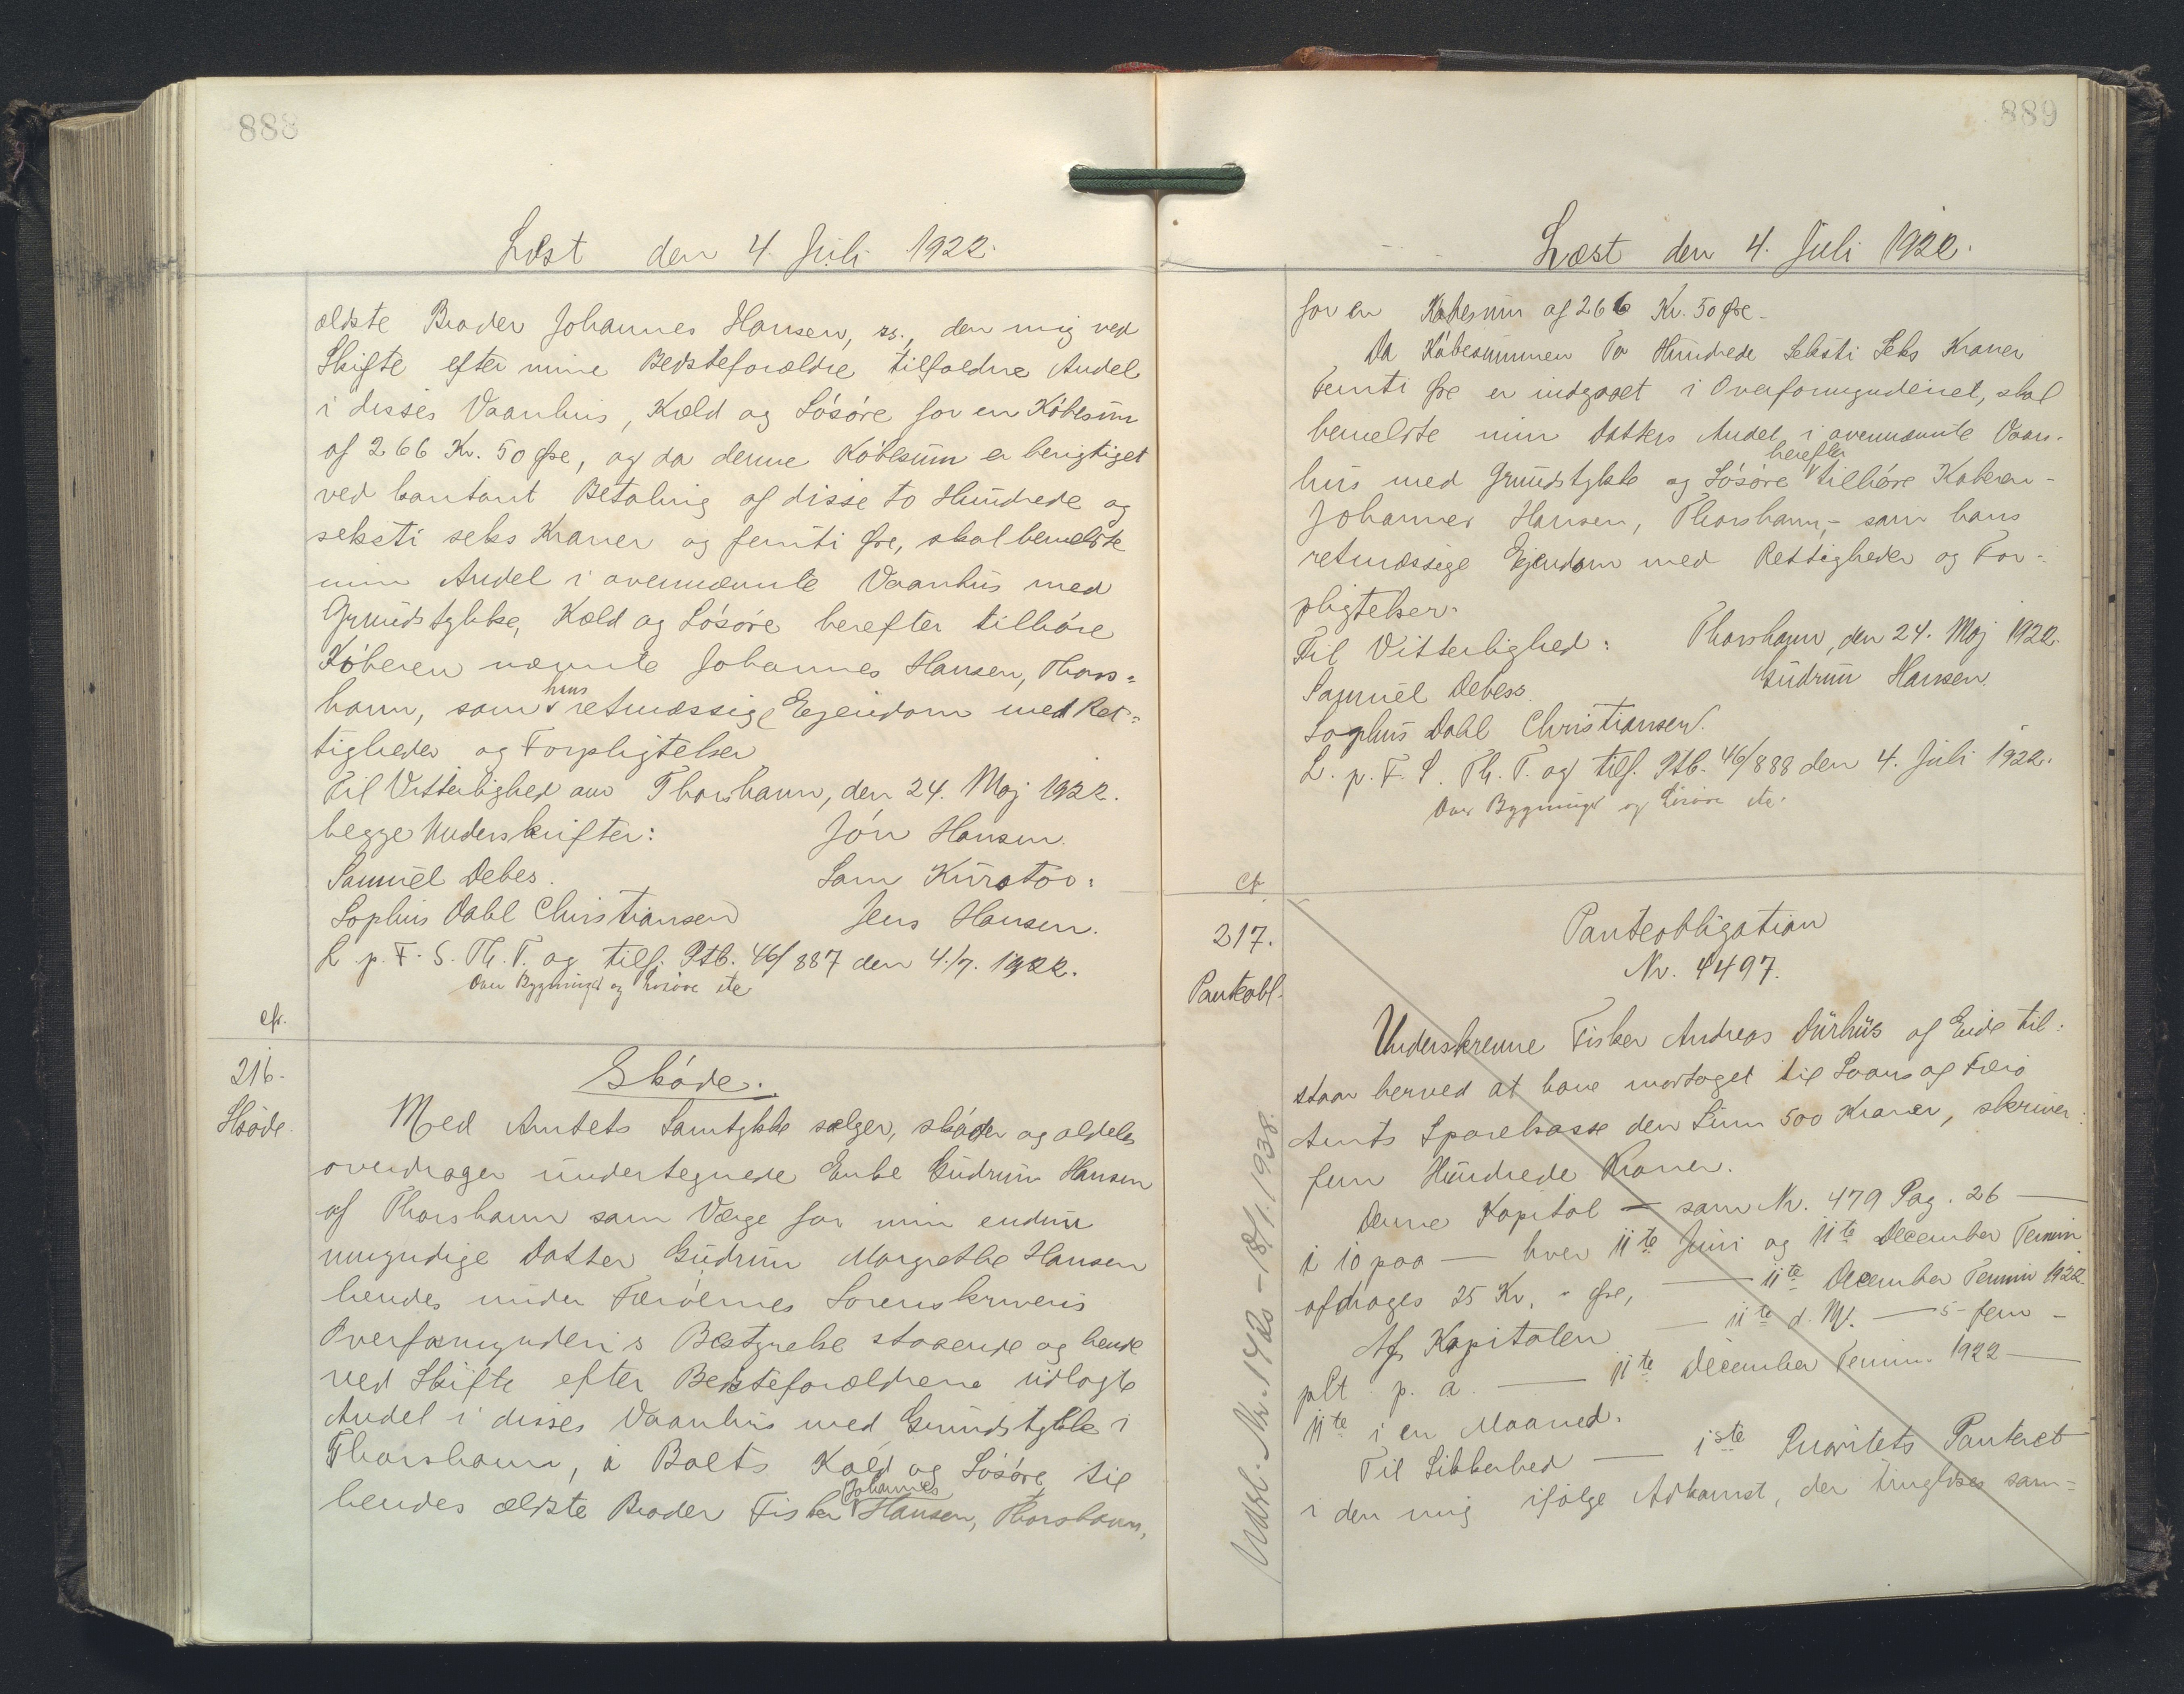 888
Læst den 4. Juli 1922.
ældste Broder Johannes Hansen, ss., den mig ved
Skifte efter mine Bedsteforældre tilfaldne Andel
i disses Vaanhus, Kæld og Løsøre for en Købesum
af 266 Kr. 50 Øre, og da denne Købesum er berigtiget
ved kontant Betaling af disse to Hundrede og
seksti seks Kroner og femti Øre, skal bemeldte
min Andel i ovennævnte Vaanhus med
Grundstykke, Kæld og Løsøre herefter tilhøre
Køberen nævnte Johannes Hansen, Thors=
havn, som hans retmæssige Ejendom med Ret=
tigheder og Forpligtelser
Til Vitterlighed om Thorshavn, den 24. Maj 1922.
begge Underskrifter: Jón Hansen.
Samuel Debes. Som Kurator:
Sophus Dahl Christiansen Jens Hansen.
L. p. F. S. Th. T. og tilf. Ptb. 46/887 den 4./7. 1922.
Over Bygninger og Løsøre etc
cfr.
216.
Skøde.
Skøde.
Med Amtets Samtykke sælger, skøder og aldeles
overdrager undertegnede Enke Gudrun Hansen
af Thorshavn som Værge for min endnu
umyndige Datter Gudrun Margrethe Hansen
hendes under Færøernes Sorenskriveris
Overformynderi's Bestyrelse staaende og hende
ved Skifte efter Bedsteforældrene udlagte
Andel i disses Vaanhus med Grundstykke i
Thorshavn, i Baets Kæld og Løsøre til
hendes ældste Broder Fisker Johannes Hansen, Thorshavn,
889
Læst den 4. Juli 1922.
for en Købesum af 266 Kr. 50 Øre.
Da Købesummen To Hundrede Seksti Seks Kroner
Femti Øre er indgaaet i Overformynderiet, skal
bemeldte min Datters Andel i ovennævnte Vaan-
hus med Grundstykke og Løsøre herefter tilhøre Køberen
Johannes Hansen, Thorshavn, som hans
retmæssige Ejendom med Rettigheder og For=
pligtelser.
Til Vitterlighed: Thorshavn, den 24. Maj 1922.
Samuel Debess. Gudrun Hansen.
Sophus Dahl Christiansen.
L. p. F. S. Th. T. og tilf. Ptb. 46/888 den 4. Juli 1922.
Over Bygninger og Løsøre etc.
cfr
217.
Panteobl.
Panteobligation
Nr. 4497.
Underskrevne Fisker Andreas Dürhüs af Eide til=
staar herved at have modtaget til Laans af Færø
Amts Sparekasse den Sum 500 Kroner, skriver:
fem Hundrede Kroner.
Denne Kapital — som Nr. 479 Pag. 26 —
i 10 paa — hver 11te Juni og 11te December Termin
afdrages 25 Kr. " Øre, — 11te December Termin 1922.
Af Kapitalen — 11te d. M. — 5 fem —
pCt p. a. — 11te December Termin 1922 —
11te i en Maaned.
Til Sikkerhed — 1ste Prioritets Panteret
i den mig ifølge Adkomst, der tinglæses sam=
Udsl. Nr. 1420 - 18/1. 1938.